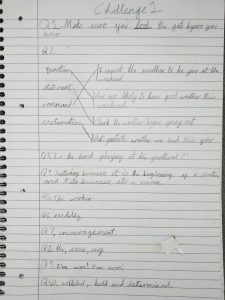 Challenge 1
Q1, Make sure you lock the gate before you
leave
Q2,
question I expect the weather to be fine at the
weekend.
statement Are we likely to have good weather this
weekend.
command Check the weather before going out
exclamation What fantastic weather we had this year
Q3, Is the band playing at the festival?
Q4, Yesterday because it is the beginning of a sentence
and because its a name.
Q5, worker
Q6,
Q7, encouragement.
Q8, the, some, any
Q9, I've won! I've won!
Q10, wobbled, bold and determined.